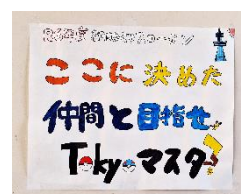 ここに決めた
仲間と目指せ
Tokyoマスター!